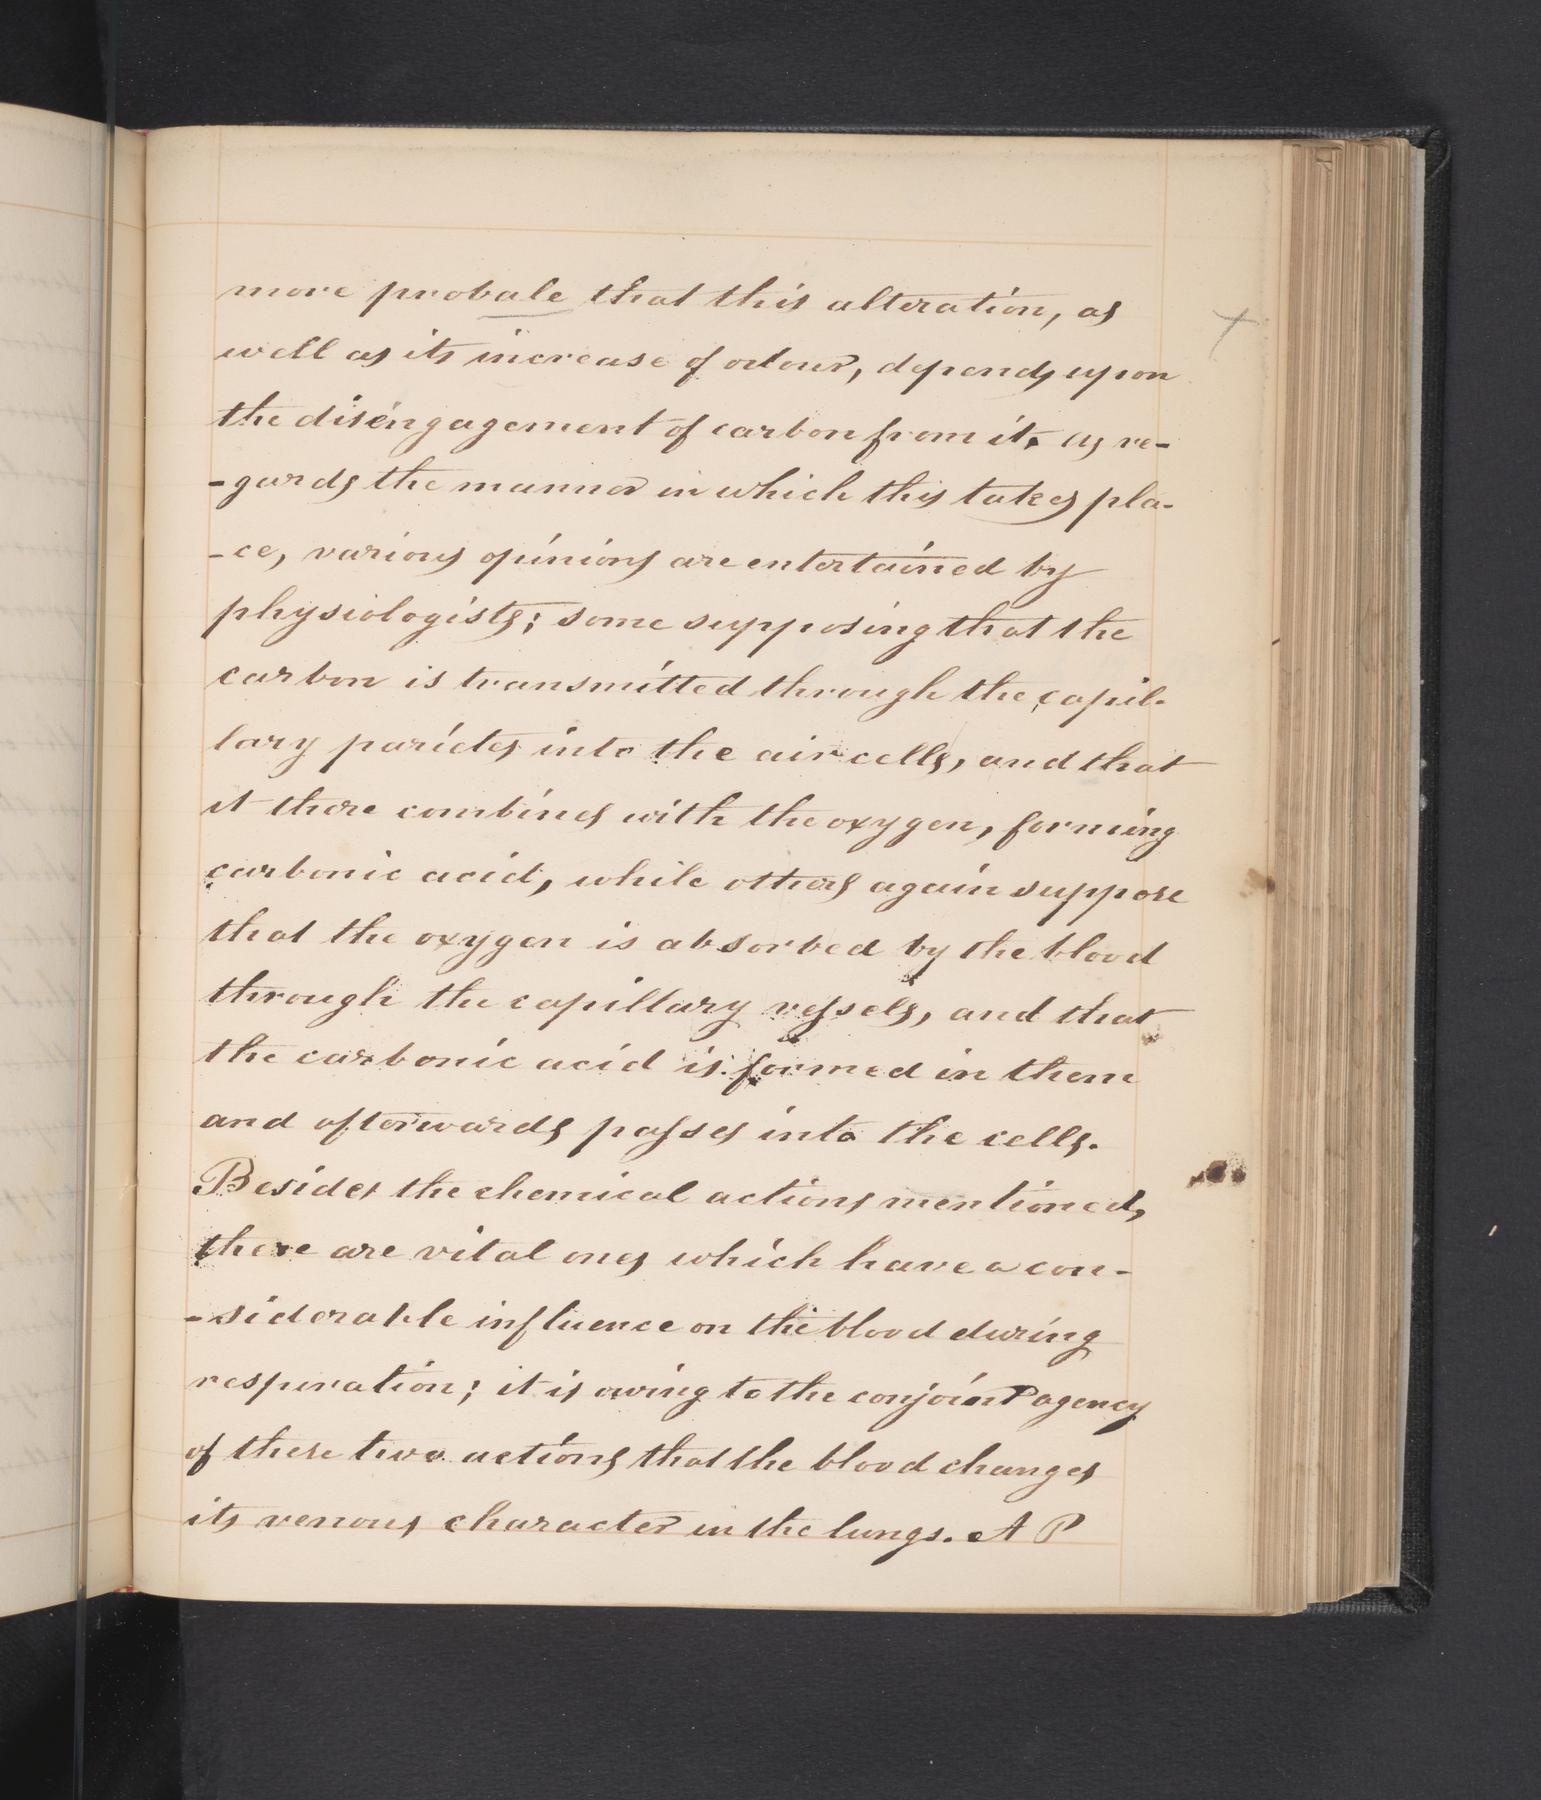 more probale that this alteration, as
well as its increase of odour, depends upon
the disengagement of carbon from it. as re-
-gards the manner in which this takes pla-
-ce, various opinions are entertained by
physiologists; some supposing that the
carbon is transmitted through the capil-
lary parietes into the air cells, and that
it there combines with the oxygen, forming
carbonic acid, while others again suppose
that the oxygen is absorbed by the blood
through the capillary vessels, and that
the carbonic acid is formed in them
and afterwards passes into the cells.
Besides the chemical actions mentioned,
there are vital ones which have a con-
-siderable influence on the blood during
respiration; it is owing to the conjoint agency
of these two actions that the blood changes
its venous character in the lungs. A P